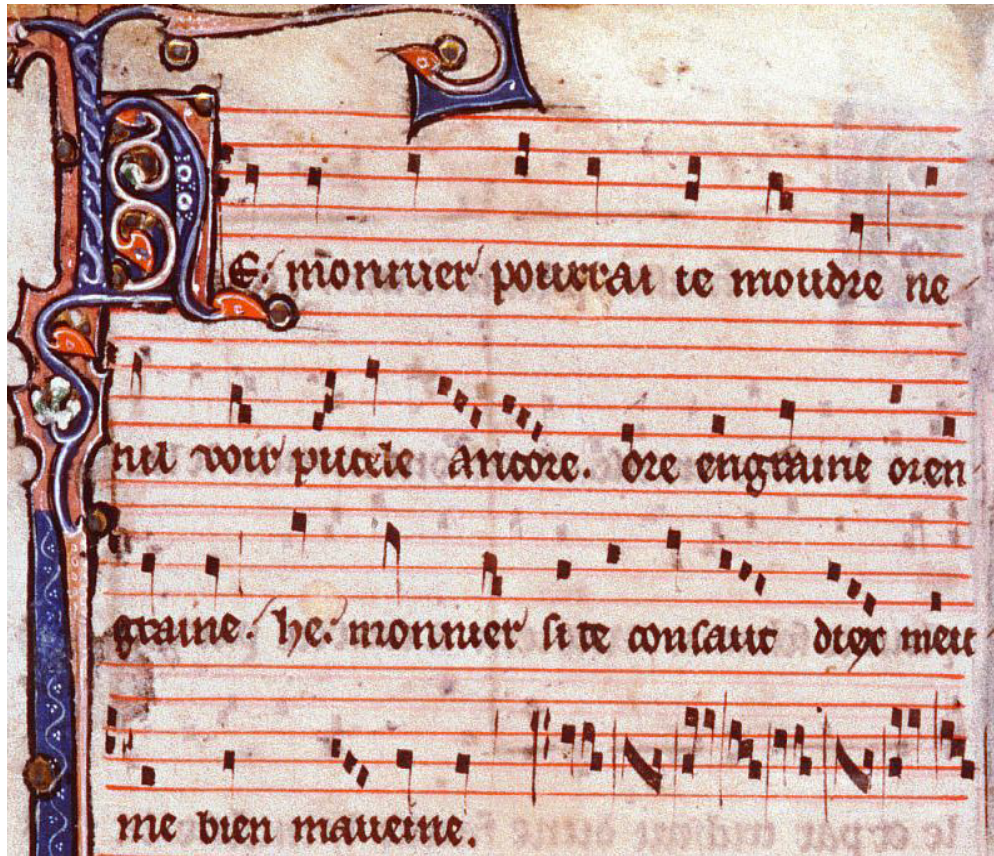 HE. monnier pourrai ie moudre ne
nil voir pucele ancore. ore engraine oren
graine. he. monnier si te consaut diex meu
me bien maueine.